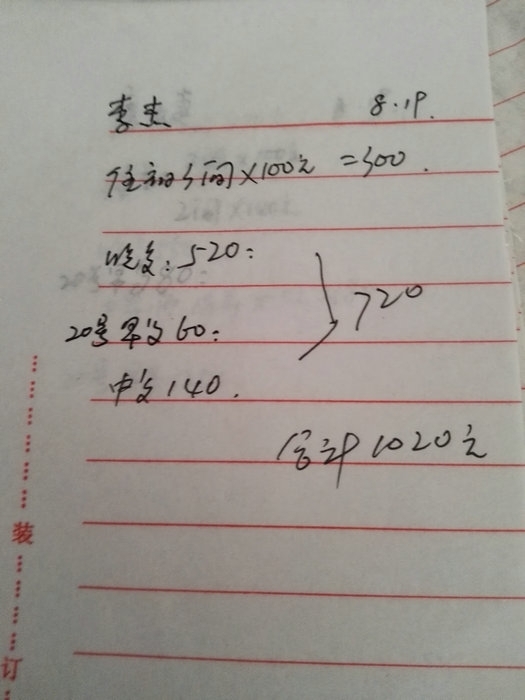 李杰 8.19.
住宿3间×100元=300.
晚餐:520:
720
20号早餐60:
中餐140.
合计1020元
装
订